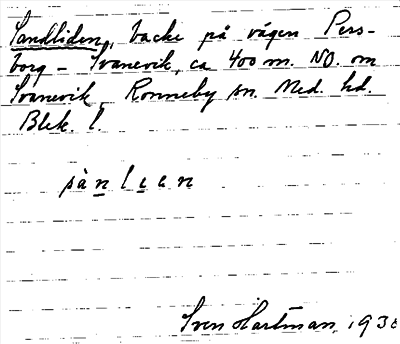 Sandliden, backe på vägen Pers-
borg - Svanevik, ca 400 m. NO. om
Svanevik, Ronneby sn. Med. hd.
Blek. l.
sànleen
Sven Hartman, 1930